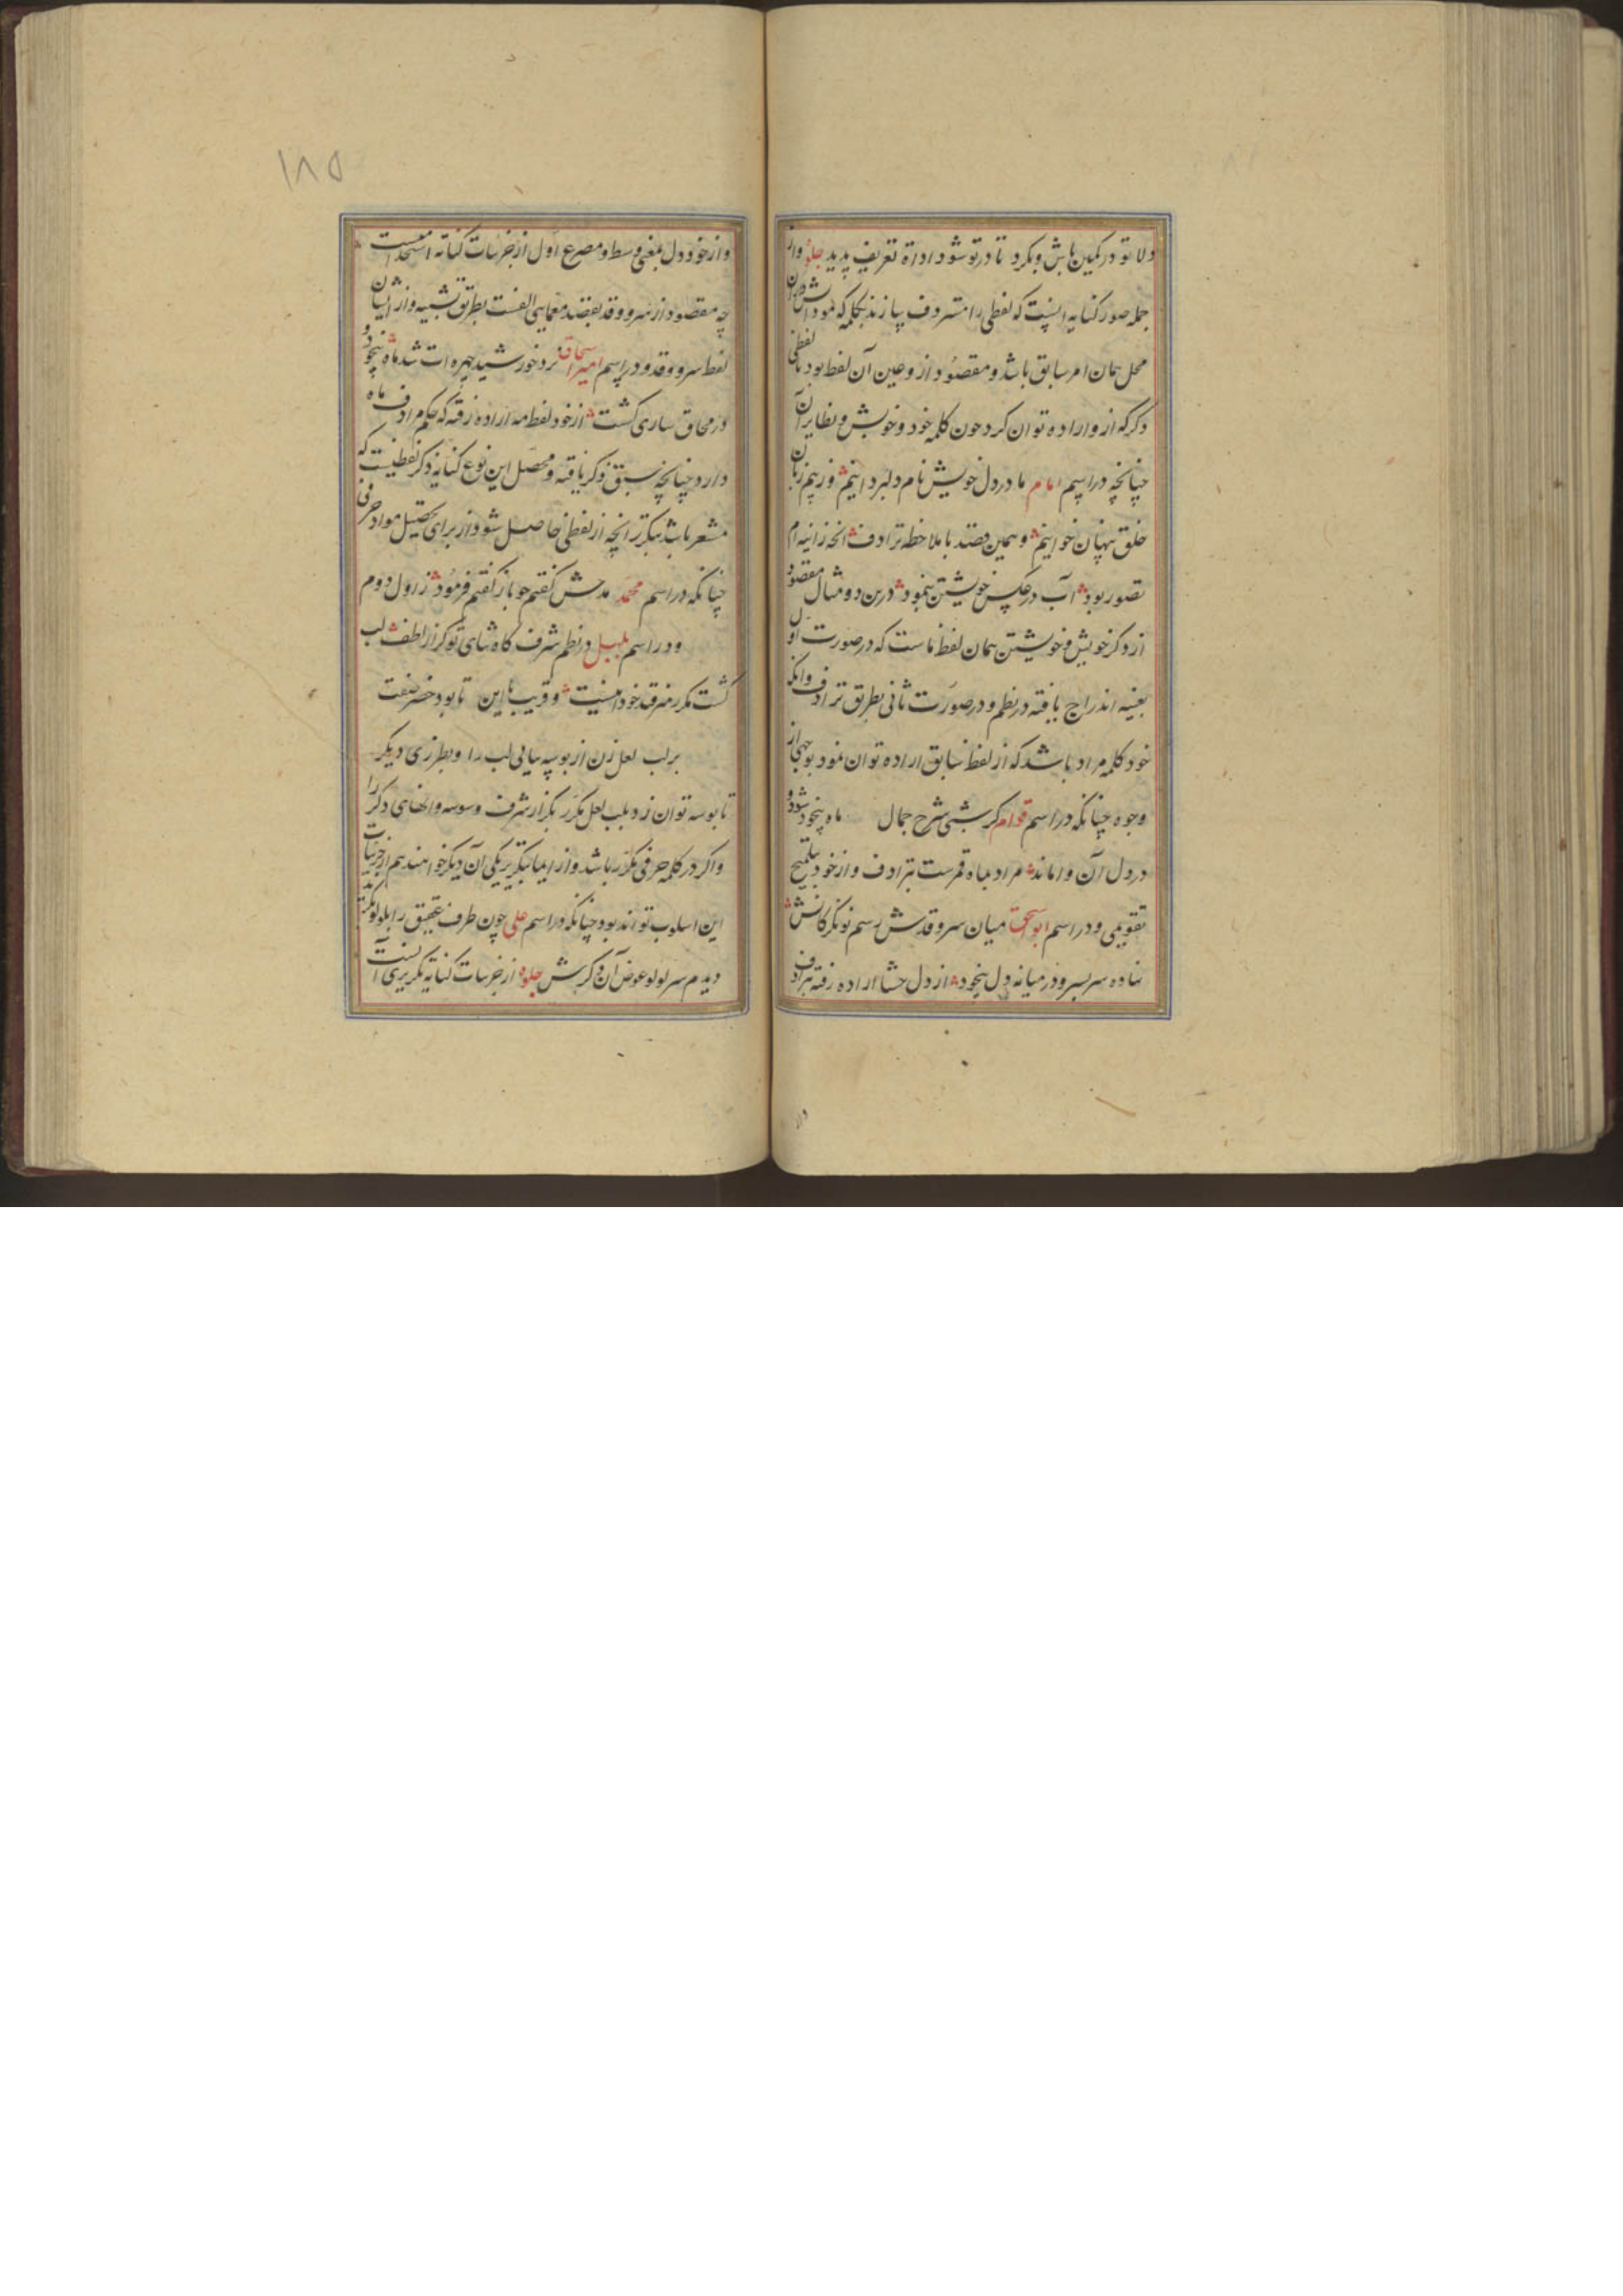 دلا تو در کمین باش و بگرد تا در تو شود اداة تعریف پدید جلوه واز
جمله صور کنایه اینست که لفظی را معروف سازند بکلمه که موداش در آن
محل همان امر سابق باشد و مقصود ازو عین آن لفظ بود یا لفظی
دکر که ازو اراده توان کرد چون کلمه خود و خویش و نظایر آن
چنانچه در اسم امام ما در دل خویش نام دلبر دانیم وز بیم زبان
خلق پنهان خوانیم و همین قصد با ملاحظه ترادف انچه زاینه ام
تصور بود آب در عکس خویشتن بنمود درین دو مثال مقصود
از ذکر خویش و خویشتن همان لفظ ماست که در صورت اول
بعینه اندراج یافته در نظم و در صورت ثانی بطریق ترادف وانکه
خود کلمه مراد باشد که از لفظ سابق اراده توان نمود بوجهی از
وجوه چنانکه در اسم قوام کر شبی شرح جمال ماه بیخود شود و
در دل آن واماند مراد بماه قمرست بترادف و از خود بتلمیح
تقویمی و در اسم ابواسحق میان سرو قدش رسم نو نکر کانش
نهاده سر بسر و در میانه دل بیخود از دل حشا اراده رفته بترادف
و از خود دل بمعنی وسط و مصرع اول از جزییات کنایه است
چه مقصود از سرو و قد بقصد معمایی الفست بطریق تشبیه و از ایشان
لفظ سرو و قد و در اسم امیر اسحاق نزد خورشید چهره ات شد ماه بیخود و
در محاق ساری کشت از خود لفظ مه اراده رفته که حکم مرادف ماه
دارد چنانچه سبق ذکر یافته و محصل این نوع کنایه ذکر لفظیست که
مشعر باشد بتکرر انچه از لفظی حاصل شود از برای تحصیل مواد حرفی
چنانکه در اسم محمد مدحش کفتم چو باز کفتم فرمود ز اول دوم
و در اسم بلبل در نظم شرف کاه ثنای تو کر از لطف لب
کشت مکرر منرقه خود اینست و قریب باین تا بود خضر صفت
بر لب لعل زن از بوسه بیابی لب را و بطرزی دیکر
تا بوسه توان زد بلب لعل مکرر بکزار شرف وسوسه والهای دکر را
و اکر در کلمه حرفی مکرر باشد و از ایما بتکریر یکی آن دیکر خواهند هم از جزییات
این اسلوب تواند بود چنانکه در اسم علی چون طرف عقیق را بلولو بکزید
دیدم سر لولو عوض آن دکرش جلوه از جزییات کنایه تکریری آنست
۱۸۵